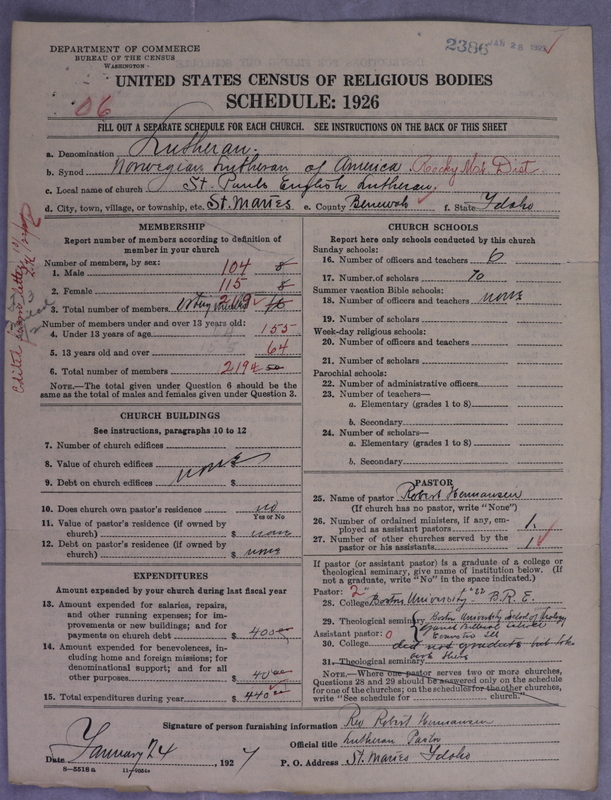 DEPARTMENT OF COMMERCE
BUREAU OF THE CENSUS
WASHINGTON
2386 JAN 28 1927
UNITED STATES CENSUS OF RELIGIOUS BODIES
06
SCHEDULE: 1926
FILL OUT A SEPARATE SCHEDULE FOR EACH CHURCH. SEE INSTRUCTIONS ON THE BACK OF THIS SHEET
a. Denomination Lutheran.
b. Synod Norwegian Lutheran of America. Rocky Mtn. Dist
c. Local name of church St. Pauls English Lutheran.
d. City, town, village, or township, etc. St. Maries e. County Benewah f. State Idaho
MEMBERSHIP
Report number of members according to definition of member in your church
Number of members, by sex:
1. Male 104 8
2. Female 115 8
3. Total number of members 219 16
Number of members under and over 13 years old:
4. Under 13 years of age 155
5. 13 years old and over 64
6. Total number of members 219
NOTE.—The total given under Question 6 should be the same as the total of males and females given under Question 3.
CHURCH BUILDINGS
See instructions, paragraphs 10 to 12
7. Number of church edifices
8. Value of church edifices $
none
9. Debt on church edifices $
10. Does church own pastor's residence no
Yes or No
11. Value of pastor's residence (if owned by church) $ none
12. Debt on pastor's residence (if owned by church) $ none
EXPENDITURES
Amount expended by your church during last fiscal year
13. Amount expended for salaries, repairs, and other running expenses; for improvements or new buildings; and for payments on church debt $ 400
14. Amount expended for benevolences, including home and foreign missions; for denominational support; and for all other purposes $ 40
15. Total expenditures during year $ 440
CHURCH SCHOOLS
Report here only schools conducted by this church
Sunday schools:
16. Number of officers and teachers 6
17. Number of scholars 70
Summer vacation Bible schools:
18. Number of officers and teachers none
19. Number of scholars
Week-day religious schools:
20. Number of officers and teachers
21. Number of scholars
Parochial schools:
22. Number of administrative officers
23. Number of teachers—
a. Elementary (grades 1 to 8)
b. Secondary
24. Number of scholars—
a. Elementary (grades 1 to 8)
b. Secondary
PASTOR
25. Name of pastor Robert Hermansen
(If church has no pastor, write "None")
26. Number of ordained ministers, if any, employed as assistant pastors 1.
27. Number of other churches served by the pastor or his assistants 1
If pastor (or assistant pastor) is a graduate of a college or theological seminary, give name of institution below. (If not a graduate, write "No" in the space indicated.)
Pastor: 2
28. College Boston University '22 B.R.E.
29. Theological seminary Boston University School of Theology
Assistant pastor: 0
30. College did not graduate but took
work there
31. Theological seminary
NOTE.—Where one pastor serves two or more churches, Questions 28 and 29 should be answered only on the schedule for one of the churches; on the schedules for the other churches, write "See schedule for church."
Signature of person furnishing information Rev Robert Hermansen
Official title Lutheran Pastor
Date January 24, 1927 P. O. Address St. Maries Idaho
8—5518a